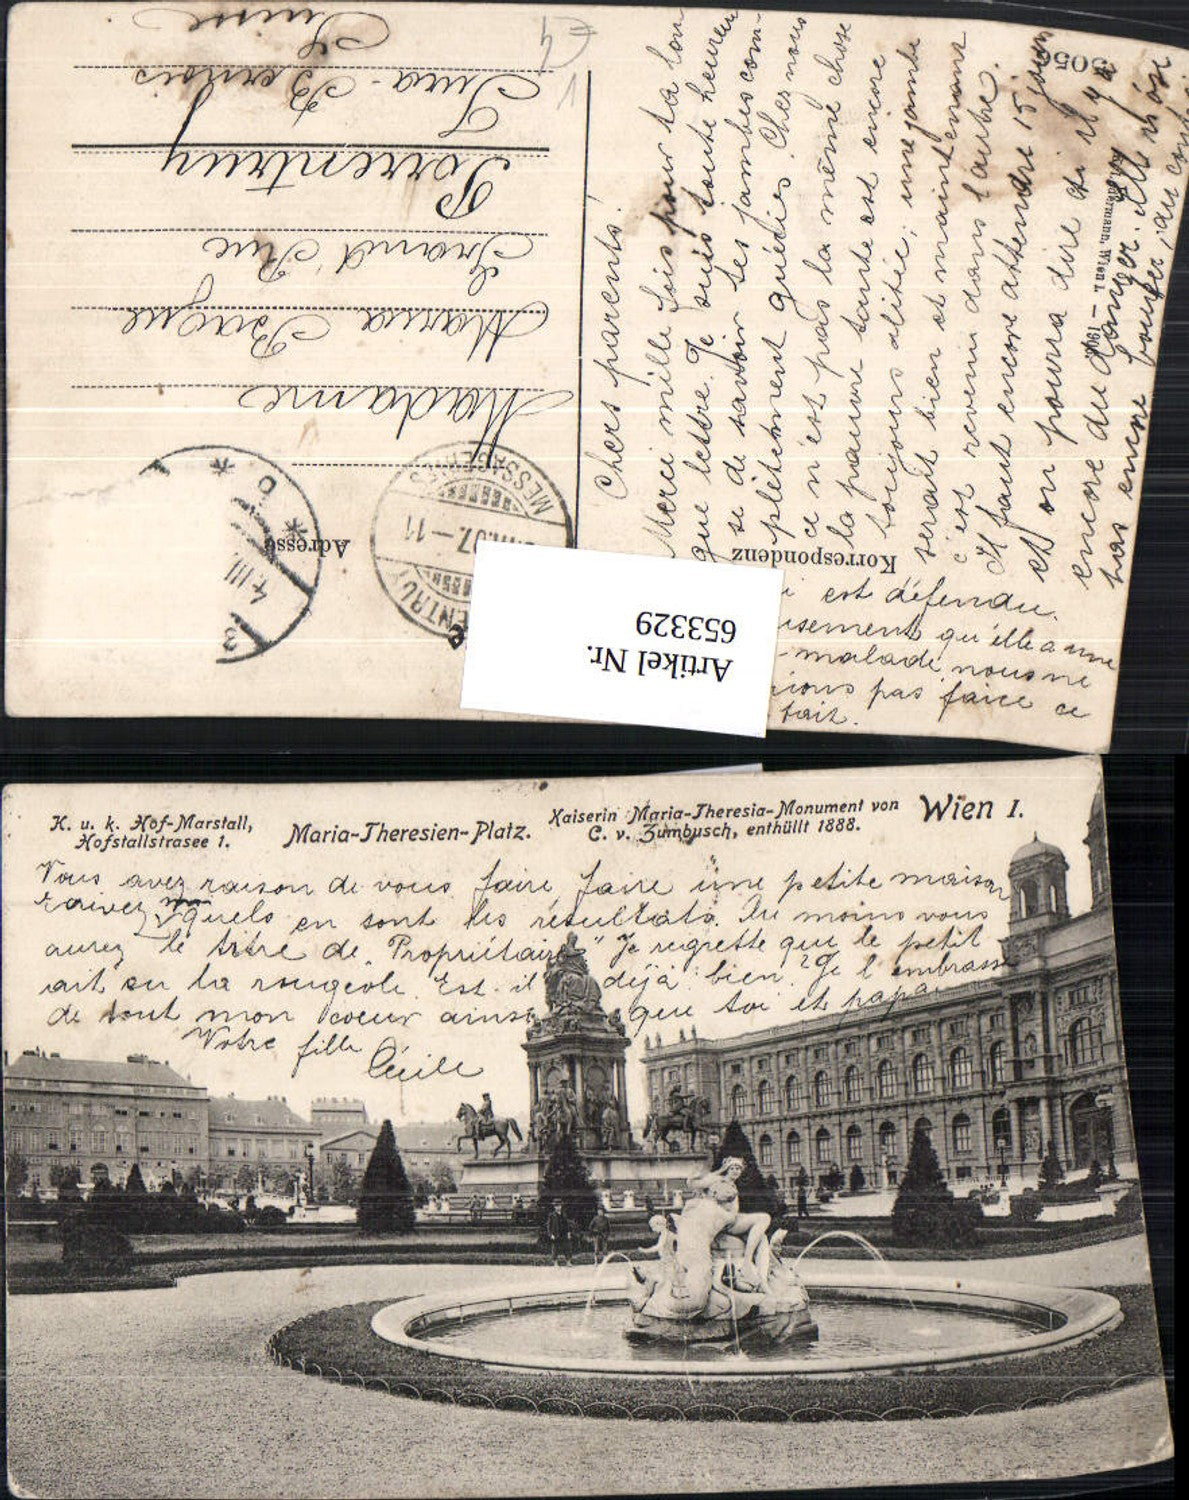 Suisse
Jura-Bernois
Porrentruy
Grand' Rue
Maria Bague
Madame
Adresse
MESSAGERIES
07.-11
4.III
3
Korrespondenz
Artikel Nr.
653329
Chers parents!
Merci mille fois pour ta lon
gue lettre. Je suis toute heureuse
de savoir tes jambes com-
plètement guéries. Chez nous
ce n'est pas la même chose
la pauvre tante est encore
toujours alitée; une jambe
serait bien et maintenant
c'est revenu dans l'autre.
Il faut encore attendre 15 jours
et on pourra dire si il y a
encore du danger. Elle n'ose
pas encore bouger, au cont
est défendu.
usement qu'elle a une
-malade, nous ne
rions pas faire ce
fait.
K. u. k. Hof-Marstall,
Hofstallstrasse 1.
Maria-Theresien-Platz.
Kaiserin Maria-Theresia-Monument von
C. v. Zumbusch, enthüllt 1888.
Wien I.
Vous avez raison de vous faire faire une petite maison
quels en sont les résultats. Du moins vous
aurez le titre de "Propriétaire" Je regrette que le petit
ait eu la rougeole. Est-il déjà bien? Je l'embrasse
de tout mon coeur ainsi que toi et papa
Votre fille
Cécile